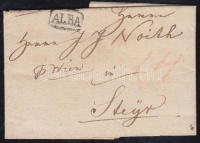 ALBA
Herrn Herrn
Herrn J J Voith
p Wien in
Steyr